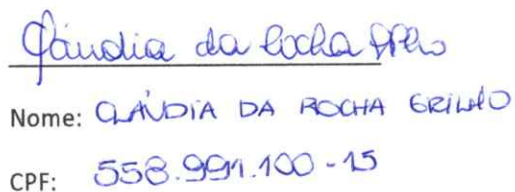 Cláudia da Rocha
Nome: CLÁUDIA DA ROCHA GRILLO
CPF: 558.991.100-15